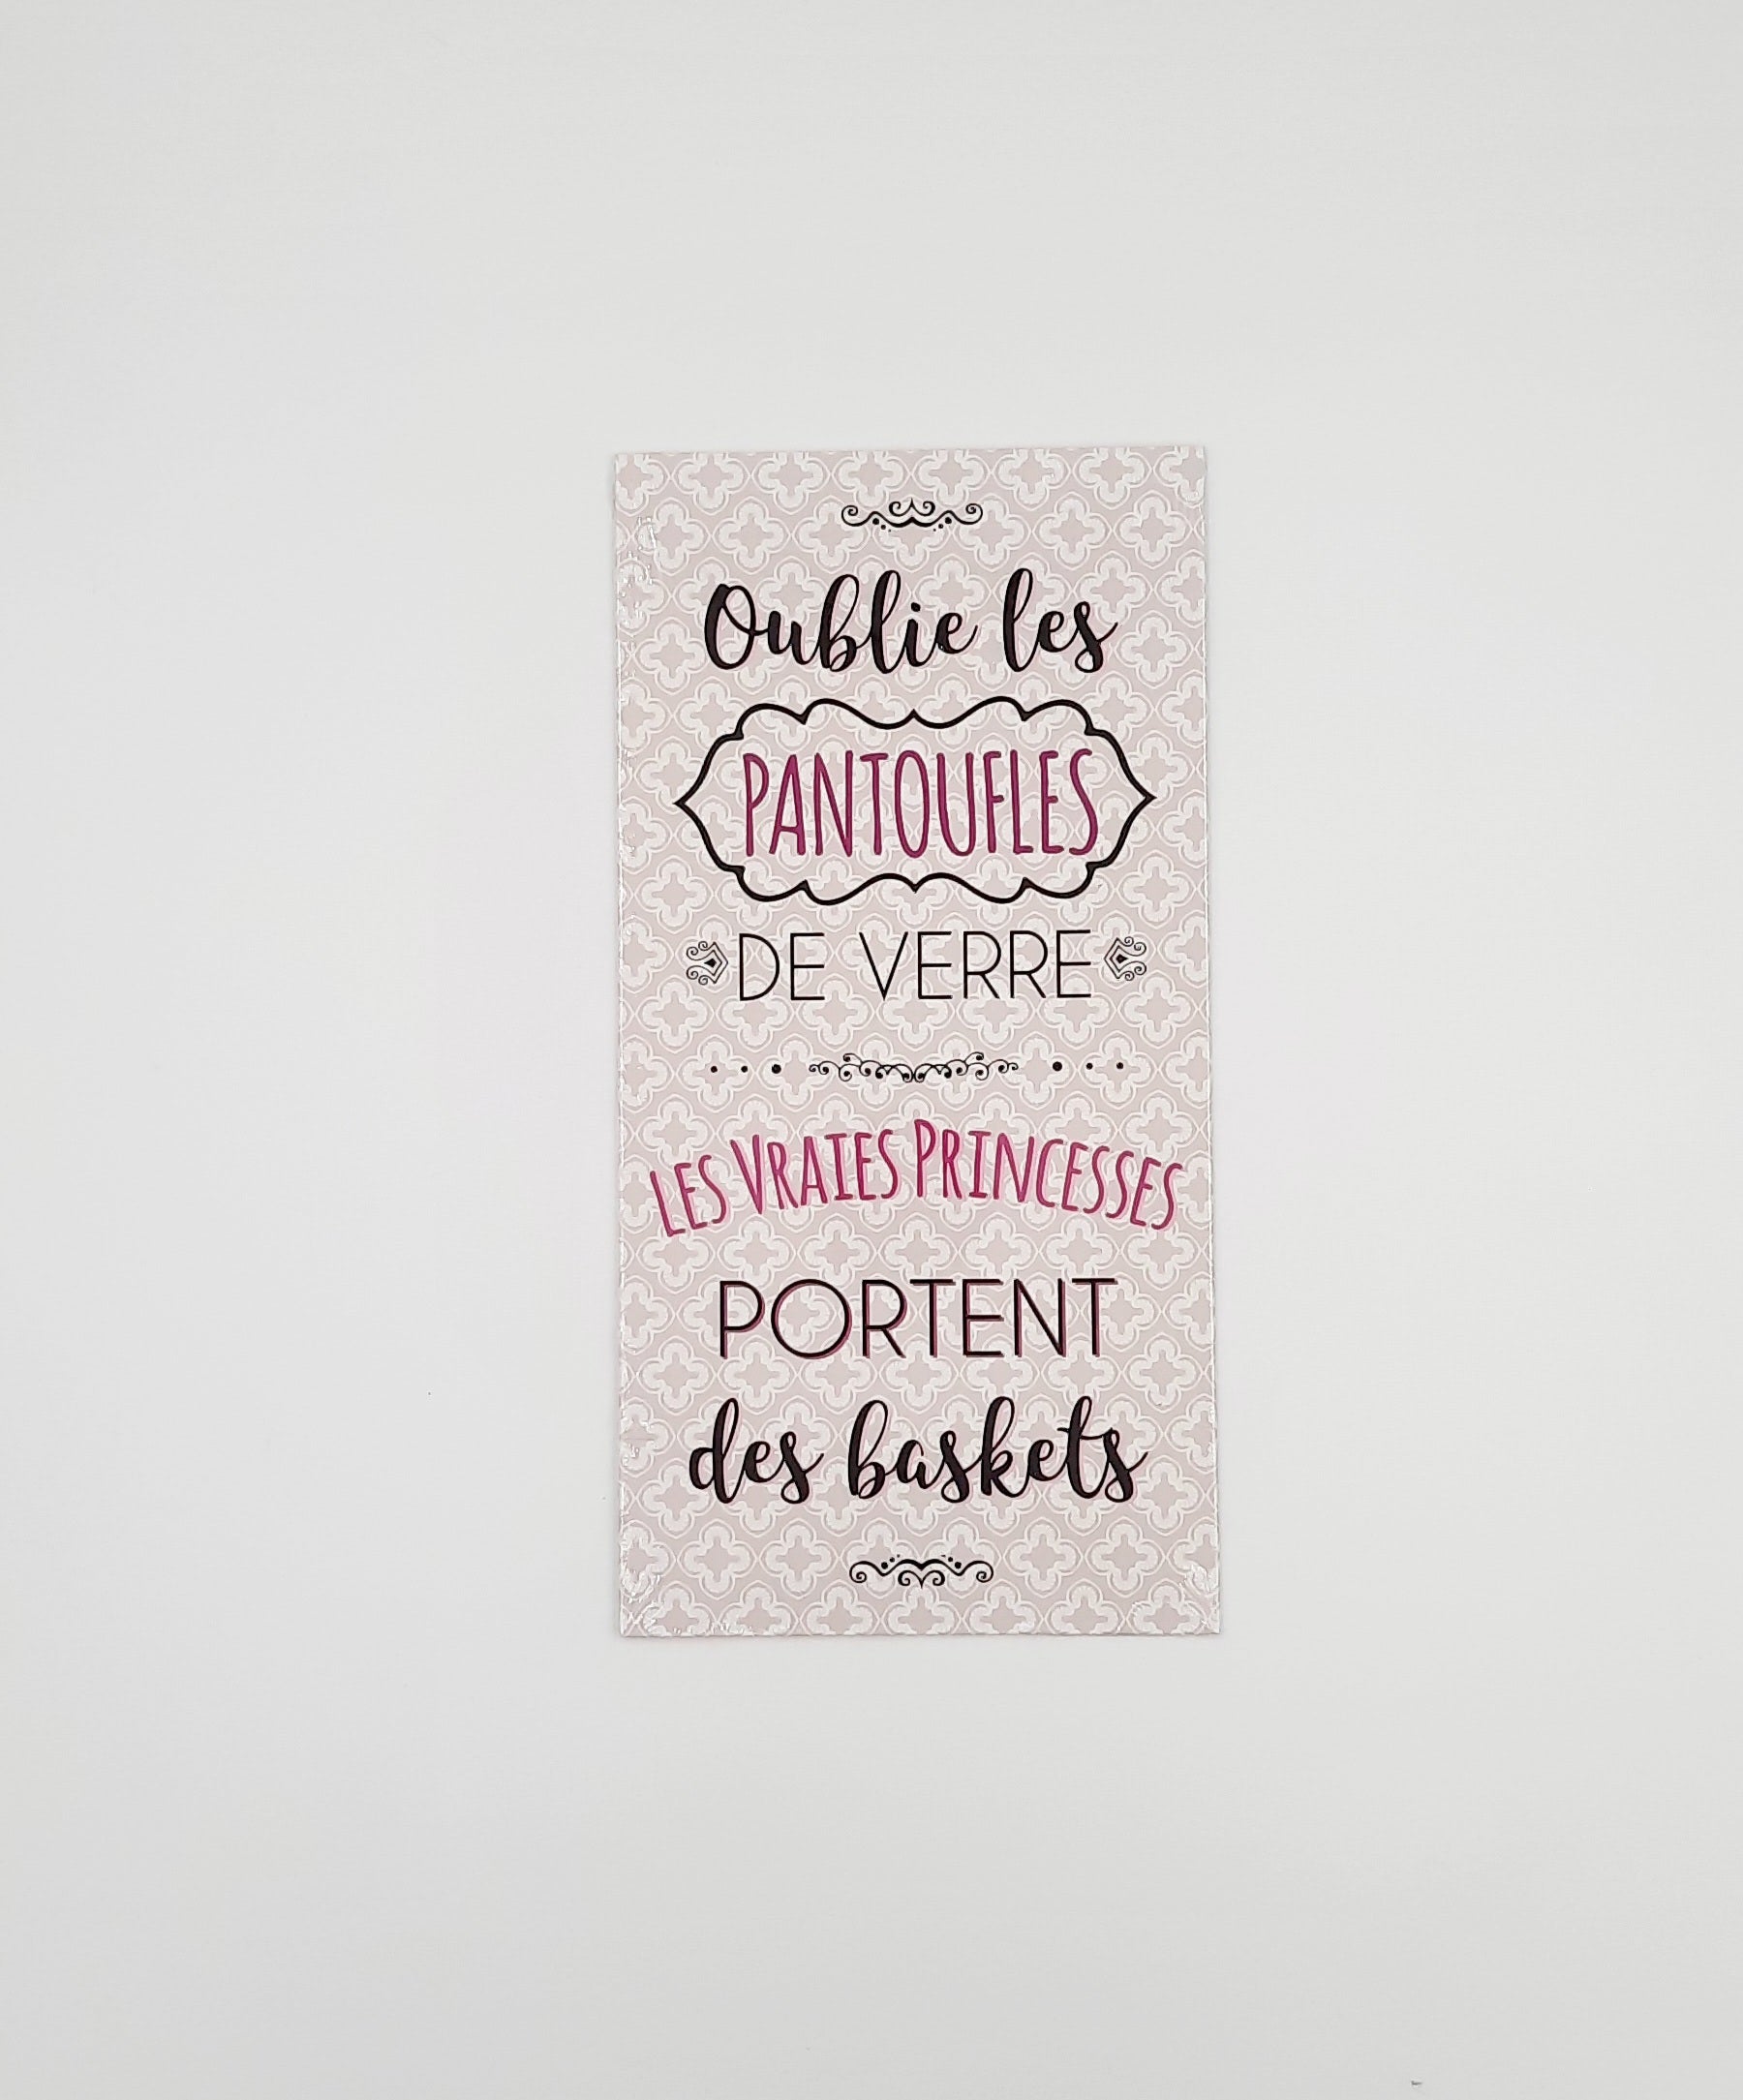 Oublie les
PANTOUFLES
DE VERRE
LES VRAIES PRINCESSES
PORTENT
des baskets